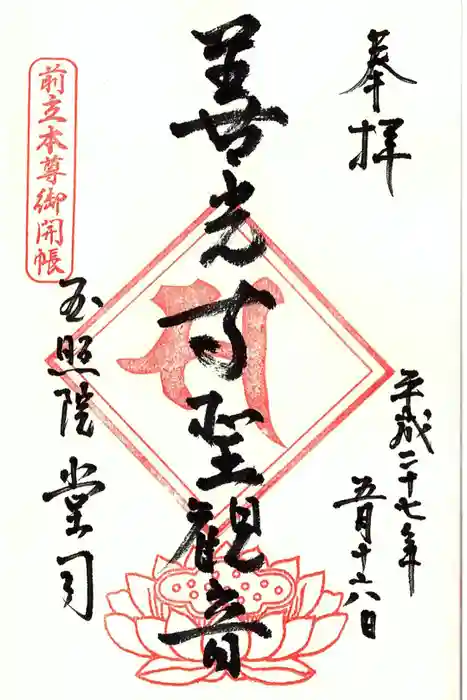 奉拝
平成二十七年
五月十六日
善光寺聖観音
前立本尊御開帳
玉照院 堂司